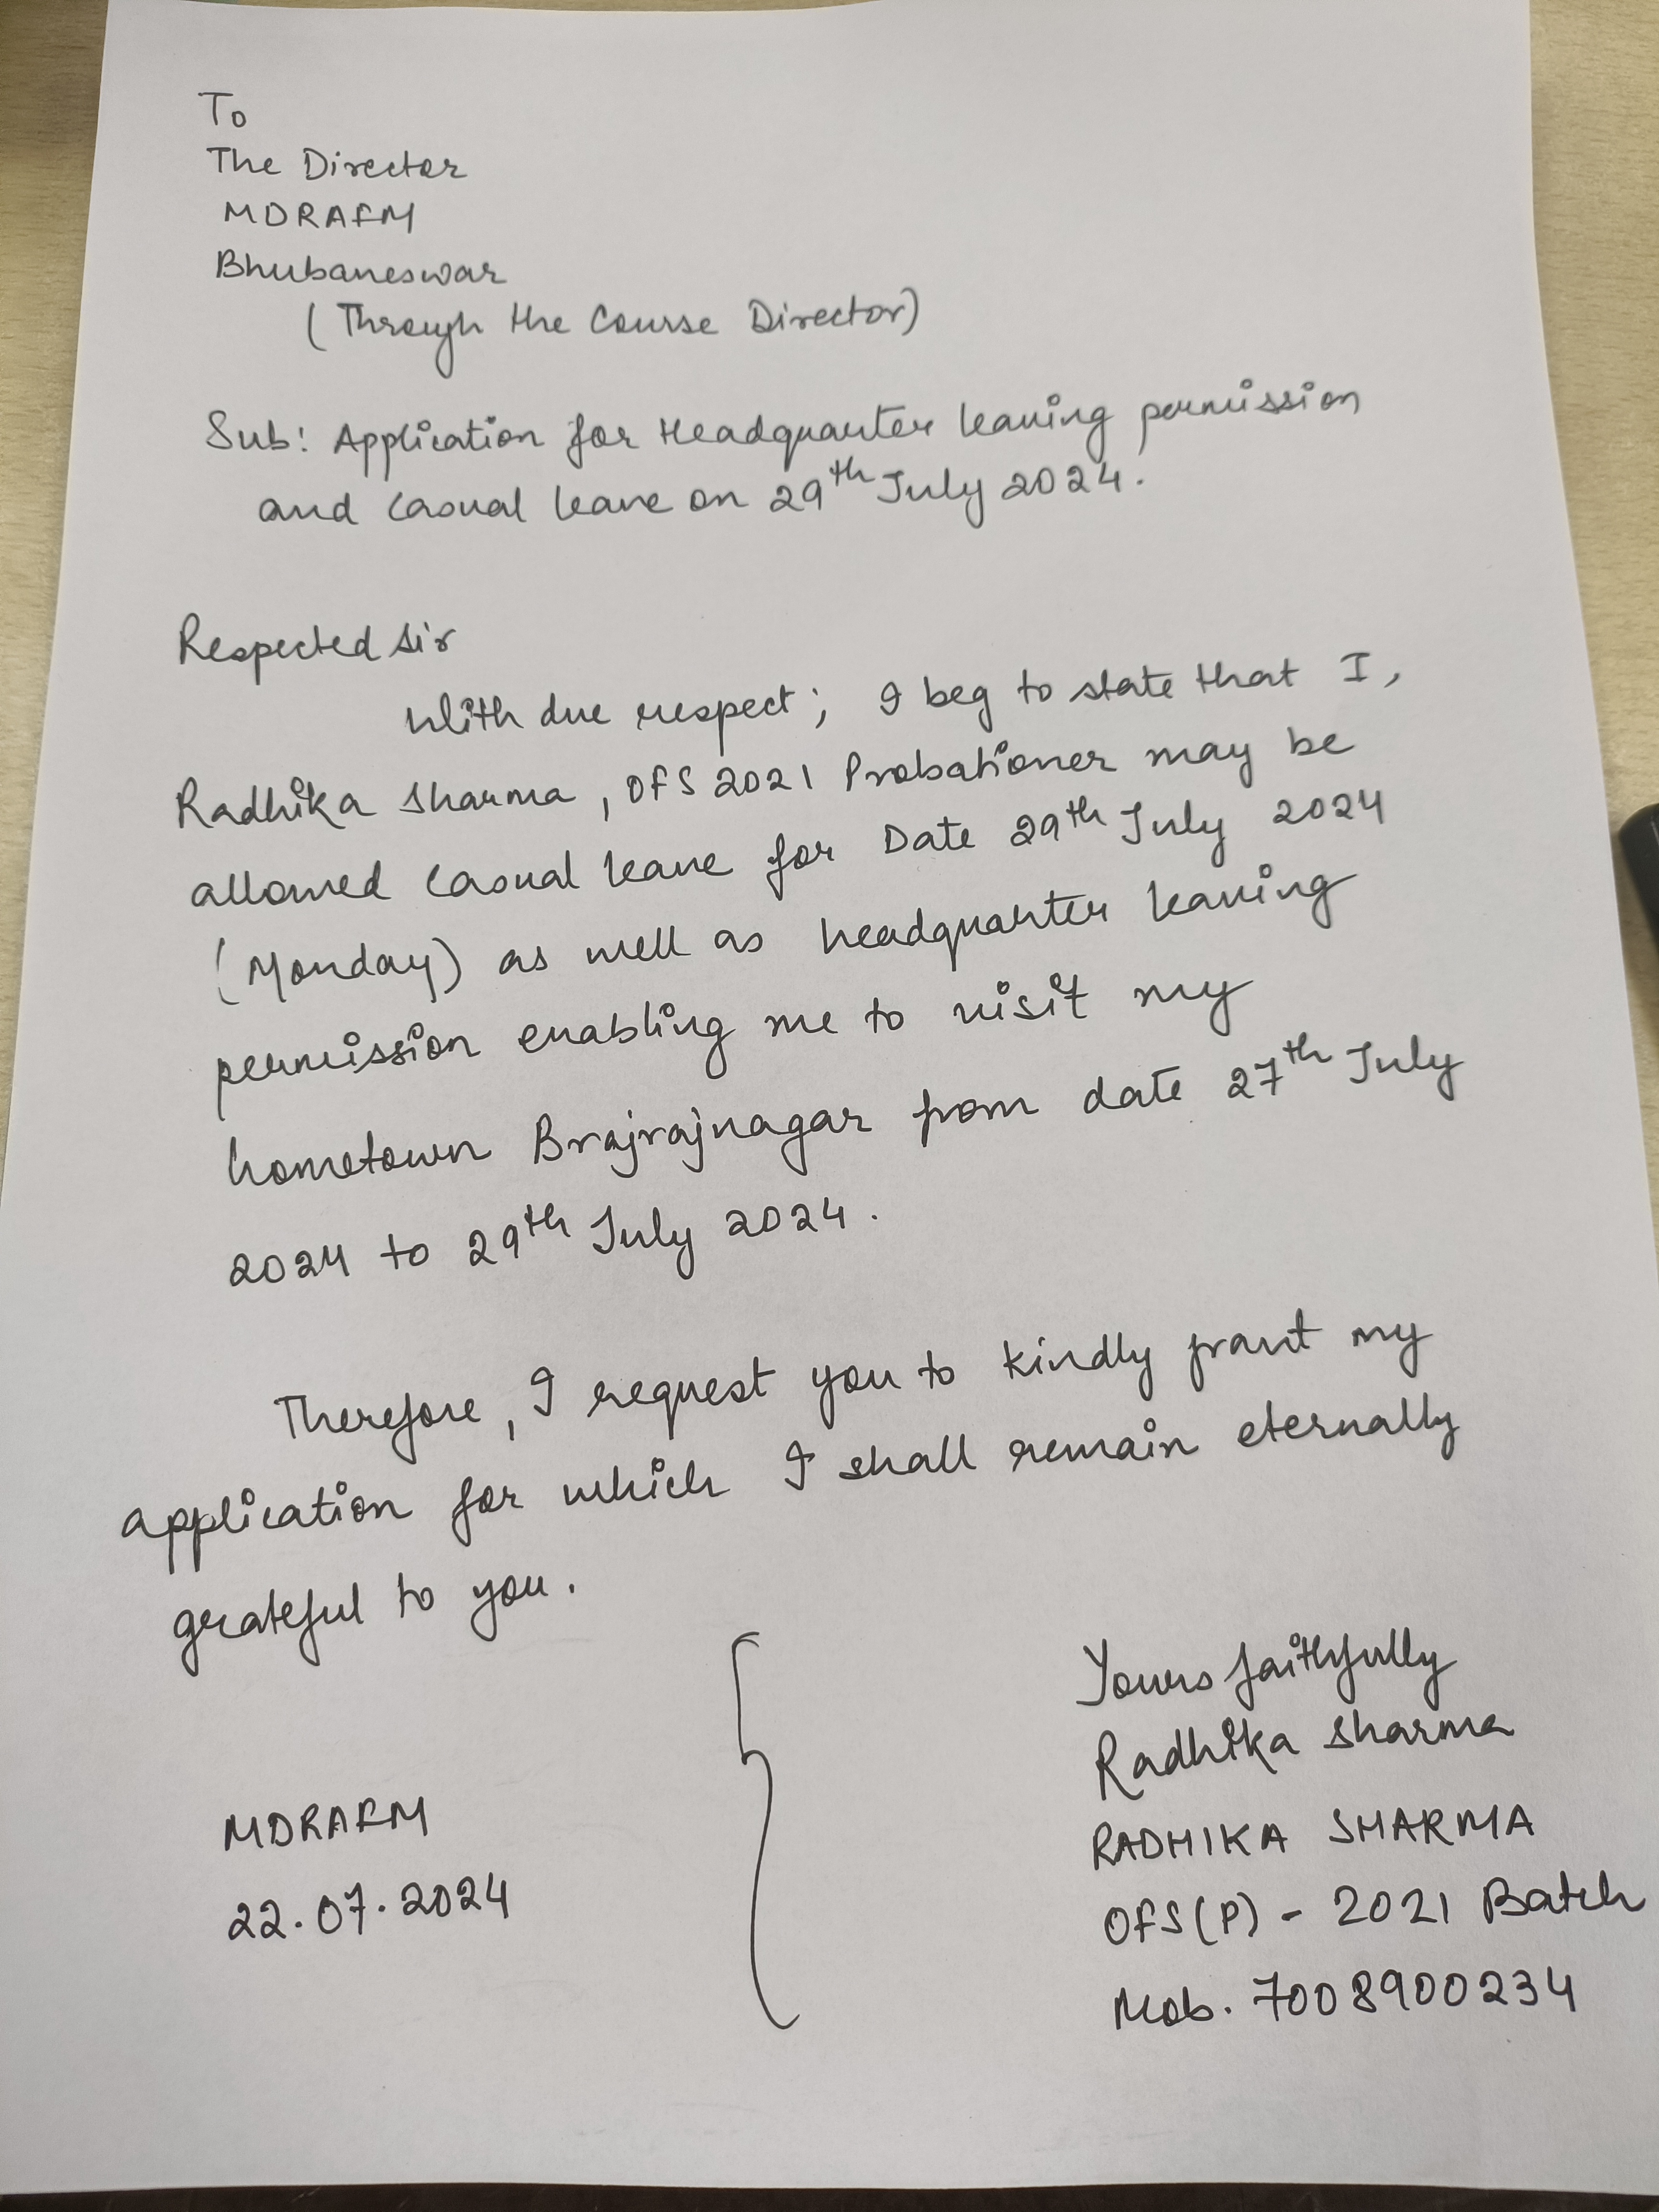 To
The Director
MDRAFM
Bhubaneswar
(Through the Course Director)
Sub: Application for Headquarter leaving permission
and Casual leave on 29th July 2024.
Respected Sir
With due respect; I beg to state that I,
Radhika Sharma, OFS 2021 Probationer may be
allowed Casual leave for Date 29th July 2024
(Monday) as well as headquarter leaving
permission enabling me to visit my
hometown Brajrajnagar from date 27th July
2024 to 29th July 2024.
Therefore, I request you to kindly grant my
application for which I shall remain eternally
grateful to you.
Yours faithfully
Radhika Sharma
RADHIKA SHARMA
OFS(P) - 2021 Batch
Mob. 7008900234
MDRAFM
22.07.2024